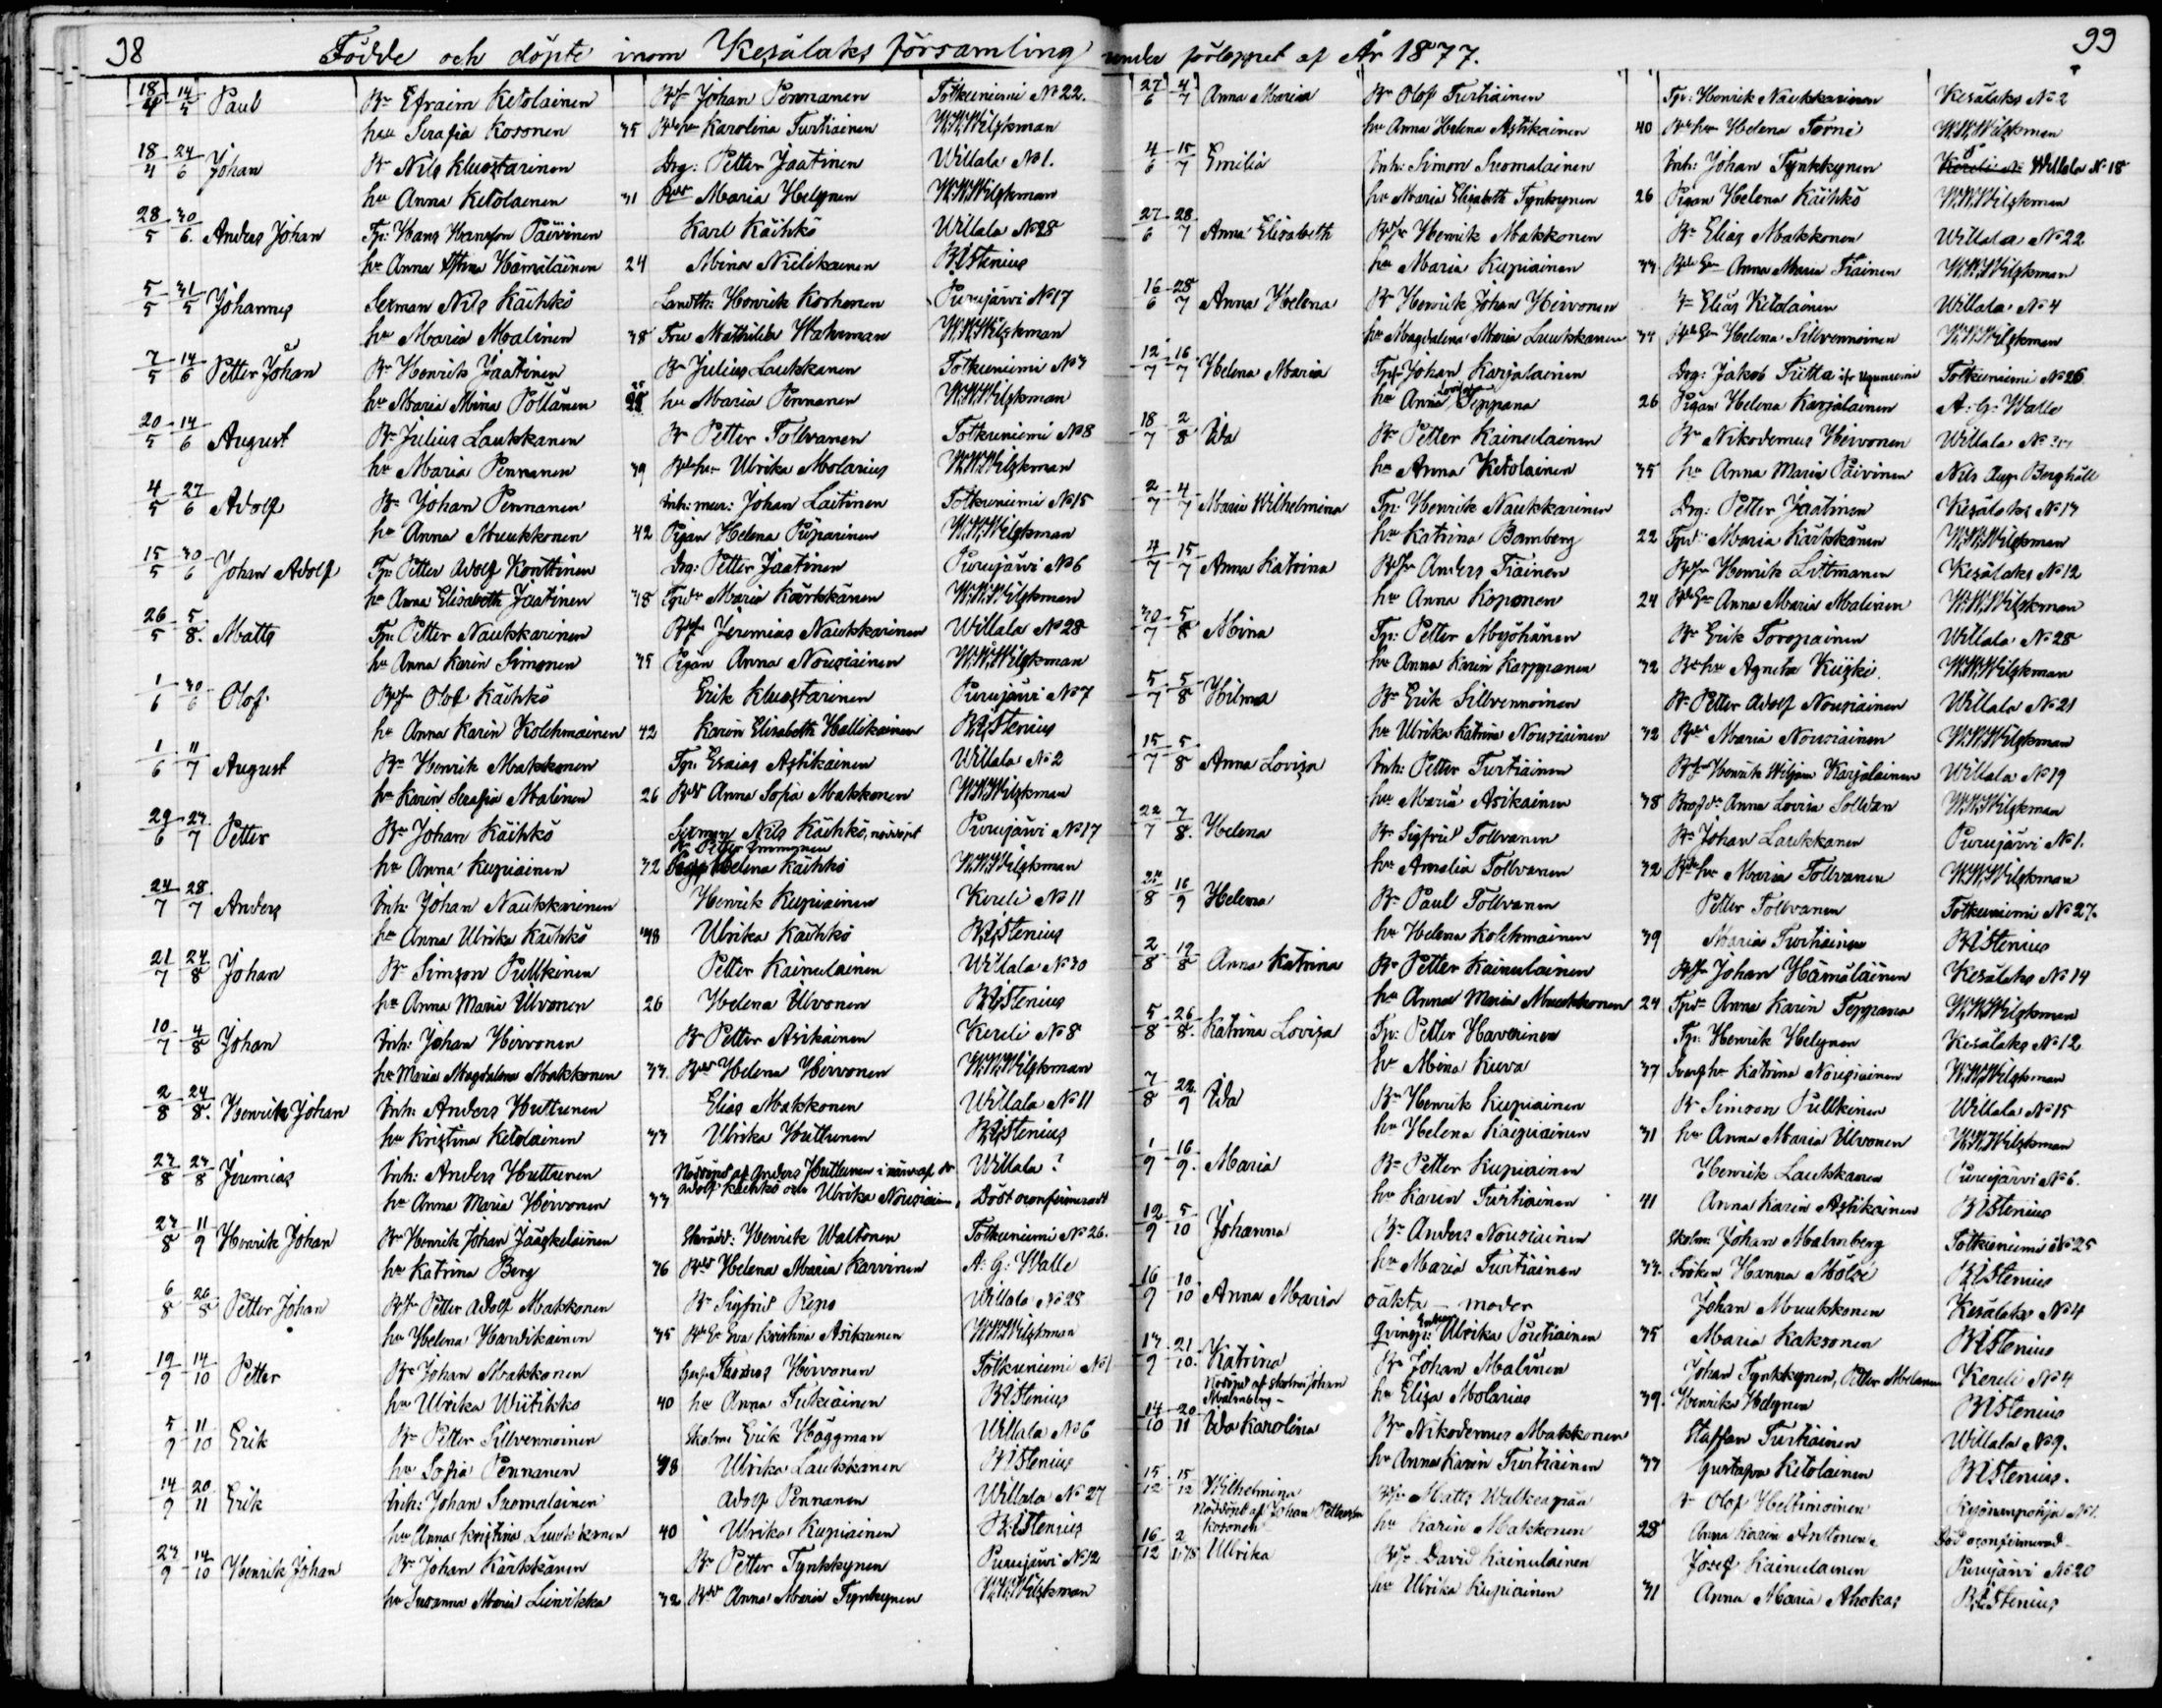 98 Födde och döpte inom Kesälaks församling under förloppet af År 1877. 99
18/4 14/5 Paul Bn Efraim Ketolainen Bdsn Johan Pennanen Totkuniemi No 22.
hu Serafia Kosonen 35 Bde hu Karolina Turtiainen W.W.Wilskman
18/4 24/6 Johan Bn Nils Kluostarinen Drg: Petter Jaatinen Willala No 1.
hu Anna Ketolainen 31 Bdr Maria Helynen W.W.Wilskman
28/5 30/6. Anders Johan Tp: Hans Hansson Päivinen Karl Käihkö Willala No 28
hu Anna Stina Hämäläinen 24 Mina Nielikainen B.I.Stenius
5/5 31/5 Johannes Sexman Nils Käihkö Landth: Henrik Korhonen Purujärvi No 17
hu Maria Malinen 38 Fru Mathilda Wahrman W.W.Wilskman
7/5 14/6 Petter Johan Bn Henrik Jaatinen Bn Julius Laukkanen Totkuniemi No 3
hu Maria Mina Pöllänen 25 hu Maria Pennanen W.W.Wilskman
20/5 14/6 August Bn Julius Laukkanen Bn Petter Tolvanen Totkuniemi No 8
hu Maria Pennanen 39 Bde hu Ulrika Molarius W.W.Wilskman
4/5 27/6 Adolf Bn Johan Pennanen Inh: mur: Johan Laitinen Totkuniemi No 15
hu Anna Muukkonen 42 Pigan Helena Piiparinen W.W.Wilskman
15/5 30/6 Johan Adolf Tp: Petter Adolf Konttinen Drg: Petter Jaatinen Purujärvi No 6
hu Anna Elisabeth Jaatinen 38 Tpdr Maria Kärkkänen W.W.Wilskman
26/5 5/8. Matts Tp: Petter Naukkarinen Bdsn Jeremias Naukkarinen Willala No 28
hu Anna Karin Simonen 35 Pigan Anna Nousiainen W.W.Wilskman
1/6 30/6 Olof Bdsn Olof Käihkö Erik Kluostarinen Purujärvi No 7
hu Anna Karin Kolehmainen 42 Karin Elisabeth Hallikainen B.I.Stenius
1/6 11/7 August Bn Henrik Makkonen Tp: Esaias Asikainen Willala No 2
hu Karin Serafia Malinen 26 Bdr Anna Sofia Makkonen W.W.Wilskman
29/6 23/7 Petter Bn Johan Käihkö Sexman Nils Käihkö, nöddöpt Purujärvi No 17
Bn Petter Immonen
hu Anna Kupiainen 32 Helena Käihkö W.W.Wilskman
24/7 28/7 Anders Inh: Johan Naukkarinen Henrik Kupiainen Kereli No 11
hu Anna Ulrika Käihkö 38 Ulrika Käihkö B.I.Stenius
21/7 24/8 Johan Bn Simson Pullkinen Petter Kainulainen Willala No 30
hu Anna Maria Ulvonen 26 Helena Ulvonen B.I.Stenius
10/7 4/8 Johan Inh: Johan Hirvonen Bn Petter Asikainen Kereli No 8
hu Maria Magdalena Makkonen 33 Bdr Helena Hirvonen W.W.Wilskman
2/8 24/8. Henrik Johan Inh: Anders Huttunen Elias Makkonen Willala No 11
hu Kristina Ketolainen 33 Ulrika Huttunen B.I.Stenius
23/8 23/8 Jeremias Inh: Anders Huttunen Nöddöpt af Anders Huttunen i närv. af Willala ?
hu Anna Maria Hirvonen 33 Adolf Käihkö och Ulrika Nousiain. Död oconfirmeradt
23/8 11/9 Henrik Johan Bn Henrik Johan Jääskeläinen Skrädd: Henrik Waltonen Totkuniemi No 26.
hu Katrina Berg 36 Bdr Helena Maria Karvinen A. G. Walle
6/8 26/8 Petter Johan Bdsn Petter Adolf Makkonen Bn Sigfrid Repo Willala No 28
hu Helena Hardikainen 35 Eva Kristina Asikainen W.W.Wilskman
19/9 14/10 Petter Bn Johan Makkonen Thomas Hirvonen Totkuniemi No 1
hu Ulrika Wiitikko 40 hu Anna Tukiainen B.I.Stenius
5/9 11/10 Erik Bn Petter Silvennoinen Skolm: Erik Häggman Willala No 6
hu Sofia Pennanen 38 Ulrika Laukkanen B.I.Stenius
14/9 20/11 Erik Inh: Johan Suomalainen Adolf Pennanen Willala No 27
hu Anna Kristina Luukkanen 40 Ulrika Kupiainen B.I.Stenius
23/9 14/10 Henrik Johan Bn Johan Kärkkänen Bn Petter Tynkkynen Purujärvi No 12
hu Susanna Maria Liinikka 32 Bdr Anna Maria Tynkkynen W.W.Wilskman
27/6 4/7 Anna Maria Bn Olof Turtiainen Tp: Henrik Naukkarinen Kesälaks No 2
hu Anna Helena Asikainen 40 Bde hu Helena Torni W.W.Wilskman
4/6 15/7 Emilia Inh: Simon Suomalainen Inh: Johan Tynkkynen Willala No 18
hu Maria Elisabeth Tynkkynen 26 Pigan Helena Käihkö W.W.Wilskman
27/6 28/7 Anna Elisabeth Bdsn Henrik Makkonen Bn Elias Makkonen Willala No 22
hu Maria Kupiainen 33 Anna Maria Tiainen W.W.Wilskman
16/6 28/7 Anna Helena Bn Henrik Johan Hirvonen Bn Elias Ketolainen Willala No 4
hu Magdalena Maria Luukkanen 34 Helena Silvennoinen W.W.Wilskman
12/7 16/7 Helena Maria Johan Karjalainen Drg: Jakob Tiitta ifr Uguniemi Totkuniemi No 26
hu Anna Lovisa Teppana 26 Pigan Helena Karjalainen A. G. Walle
18/7 2/8 Ida Bn Petter Kainulainen Bn Nikodemus Heivonen Willala No
hu Anna Ketolainen 35 hu Anna Maria Päivinen Nils Aug. Berghäll
2/7 4/7 Maria Wilhelmina Tp: Henrik Naukkarinen Drg: Petter Jaatinen Kesälaks No 13
hu Katrina Bamberg 22 Tpdr Maria Kärkkänen W.W.Wilskman
4/7 15/7 Anna Katrina Bdsn Anders Tiainen Bdsn Henrik Littmanen Kesälaks No 12
hu Anna Koponen 24 Anna Maria Malinen W.W.Wilskman
30/7 5/8 Mina Tp: Petter Myöhänen Bn Erik Toropainen Willala No 28
hu Anna Karin Karppanen 32 Bde hu Agneta Kiiski. W.W.Wilskman
5/7 5/8 Hilma Bn Erik Silvennoinen Bn Petter Adolf Nousiainen Willala No 21
hu Ulrika Katrina Nousiainen 32 Bdr Maria Nousiainen W.W.Wilskman
15/7 5/8 Anna Lovisa Inh: Petter Turtiainen Bdsn Henrik Wiljam Karjalainen Willala No 19
hu Maria Asikainen 38 Anna Lovisa Solldan W.W.Wilskman
22/7 7/8. Helena Bn Sigfrid Tolvanen Bn Johan Laukkanen Purujärvi No 1.
hu Amalia Tolvanen 32 Bde hu Maria Tolvanen W.W.Wilskman
16/9 Helena Bn Paul Tolvanen Petter Tolvanen Totkuniemi No 27.
hu Helena Kolehmainen 39 Maria Turtiainen B.I.Stenius
2/8 19/8 Anna Katrina Bn Petter Kainulainen Bdsn Johan Hämäläinen Kesälaks No 14
hu Anna Maria Muukkonen 24 Tpdr Anna Karin Teppana W.W.Wilskman
5/8 26/8. Katrina Lovisa Tp: Petter Haverinen Tp: Henrik Helynen Kesälaks No 12
hu Mina Kurva 37 hu Katrina Nousiainen W.W.Wilskman
7/8 22/9 Ida Bn Henrik Kupiainen Bn Simson Pullkinen Willala No 15
hu Helena Karpiainen 31 hu Anna Maria Ulvonen W.W.Wilskman
1/9 16/9. Maria Bn Petter Kupiainen Henrik Laukkanen Purujärvi No 6.
hu Karin Turtiainen 41 Anna Karin Asikainen B.I.Stenius
12/9 5/10 Johanna Bn Anders Nousiainen Skolm: Johan Malmberg Totkuniemi No 25
hu Maria Turtiainen 33. Fröken Hanna Molsé B.I.Stenius
16/9 10/10 Anna Maria oäkta – moder Johan Muukkonen Kesälaks No 4
Qvinsp: Enkan Ulrika Poutiainen 35 Maria Kaksonen B.I.Stenius
13/9 21/10. Katrina Bn Johan Malinen Johan Tynkkynen, Petter Melanen Kereli No 4
Nöddöpt af skolm: Johan Malmberg – hu Elisa Molarius 39. Henrika Helynen B.I.Stenius
14/10 20/11 Ida Karolina Bn Nikodemus Makkonen Staffan Turtiainen Willala No 9.
hu Anna Karin Turtiainen 33 Gustafva Ketolainen B.I.Stenius.
15/12 15/12 Wilhelmina Bdsn Matts Walkeapää Bn Olof Heltimoinen
Nöddöpt af Johan Pettersson Kosonen hu Karin Makkonen 28 Anna Karin Anttonen. Död oconfirmerad
16/12 2/1.78 Ulrika Bdsn David Kainulainen Josef Kainulainen Purujärvi No 20
hu Ulrika Kupiainen 31 Anna Maria Ahokas B.I.Stenius